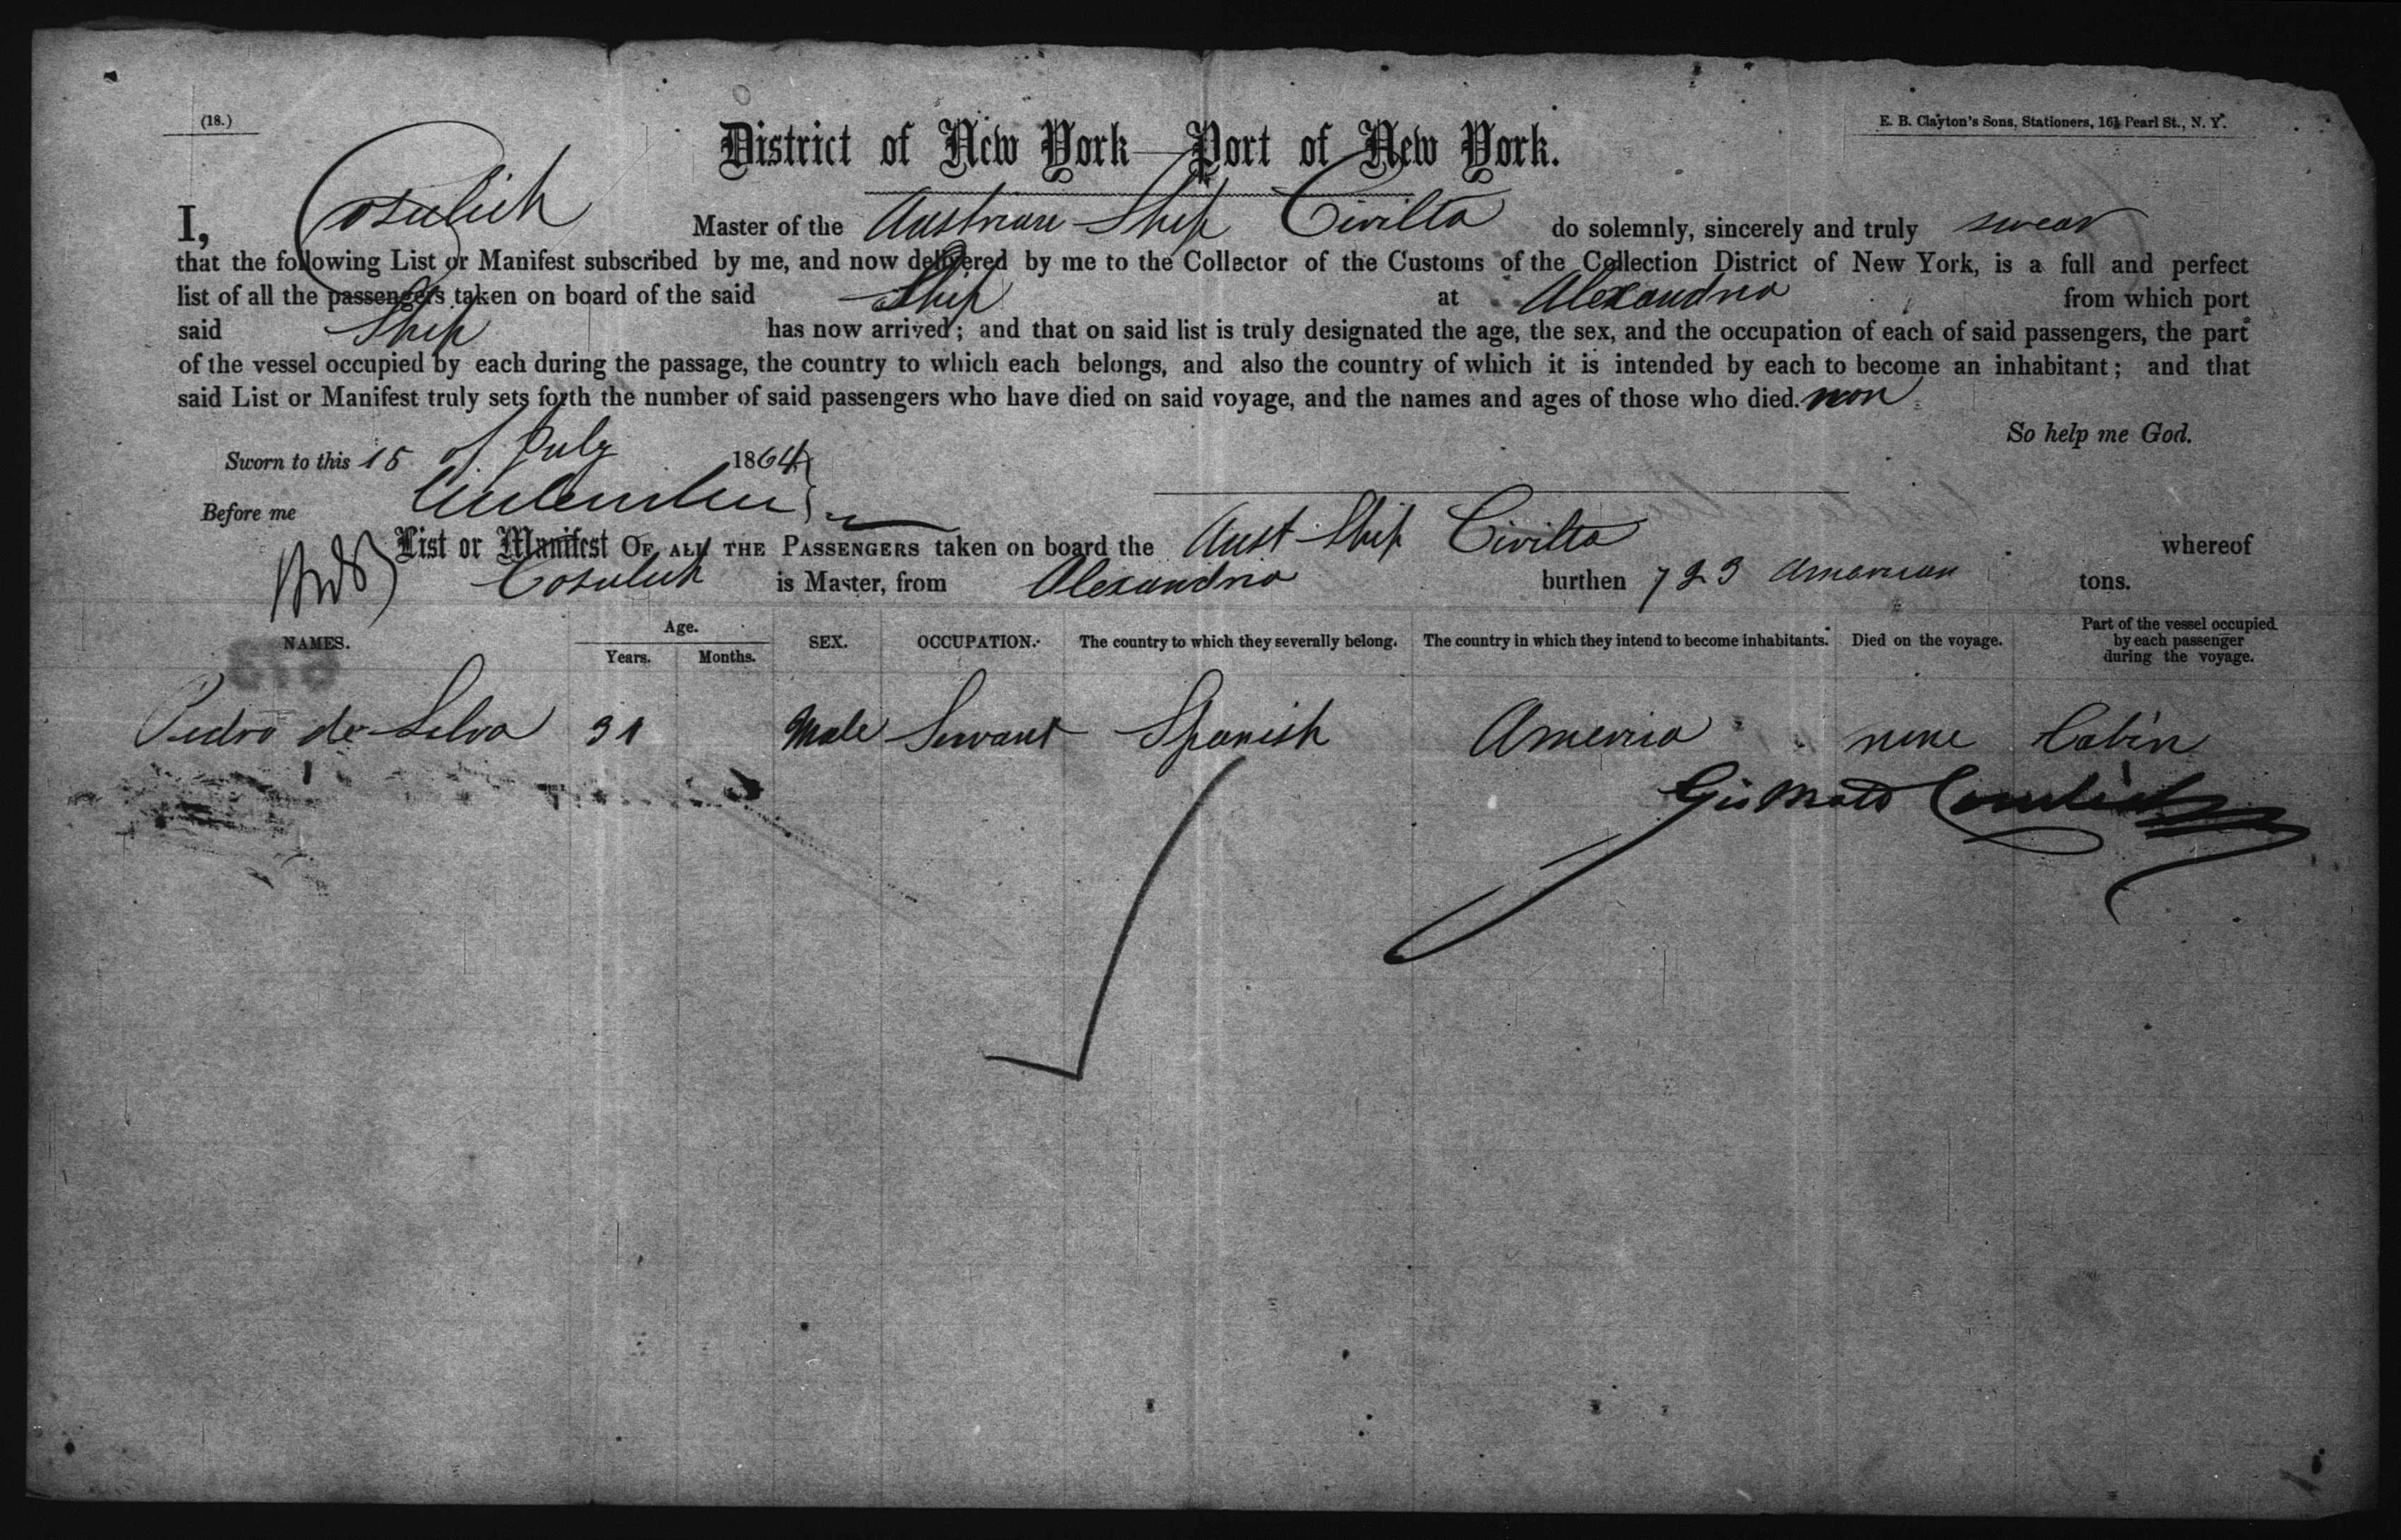 (18.)
E. B. Clayton's Sons, Stationers, 161 Pearl St., N. Y.
District of New York—Port of New York.
I, Cosulich Master of the Austrian Ship Civilta do solemnly, sincerely and truly swear
that the following List or Manifest subscribed by me, and now delivered by me to the Collector of the Customs of the Collection District of New York, is a full and perfect
list of all the passengers taken on board of the said Ship at Alexandria from which port
said Ship has now arrived; and that on said list is truly designated the age, the sex, and the occupation of each of said passengers, the part
of the vessel occupied by each during the passage, the country to which each belongs, and also the country of which it is intended by each to become an inhabitant; and that
said List or Manifest truly sets forth the number of said passengers who have died on said voyage, and the names and ages of those who died. non
So help me God.
Sworn to this 15 of July 1864
Before me
List or Manifest OF ALL THE PASSENGERS taken on board the Aust Ship Civilta whereof
Cosulich is Master, from Alexandria burthen 723 American tons.
NAMES. Age. Years. Months. SEX. OCCUPATION. The country to which they severally belong. The country in which they intend to become inhabitants. Died on the voyage. Part of the vessel occupied by each passenger during the voyage.
673
Pedro de Silva 31 Male Servant Spanish America none Cabin
Cosulich